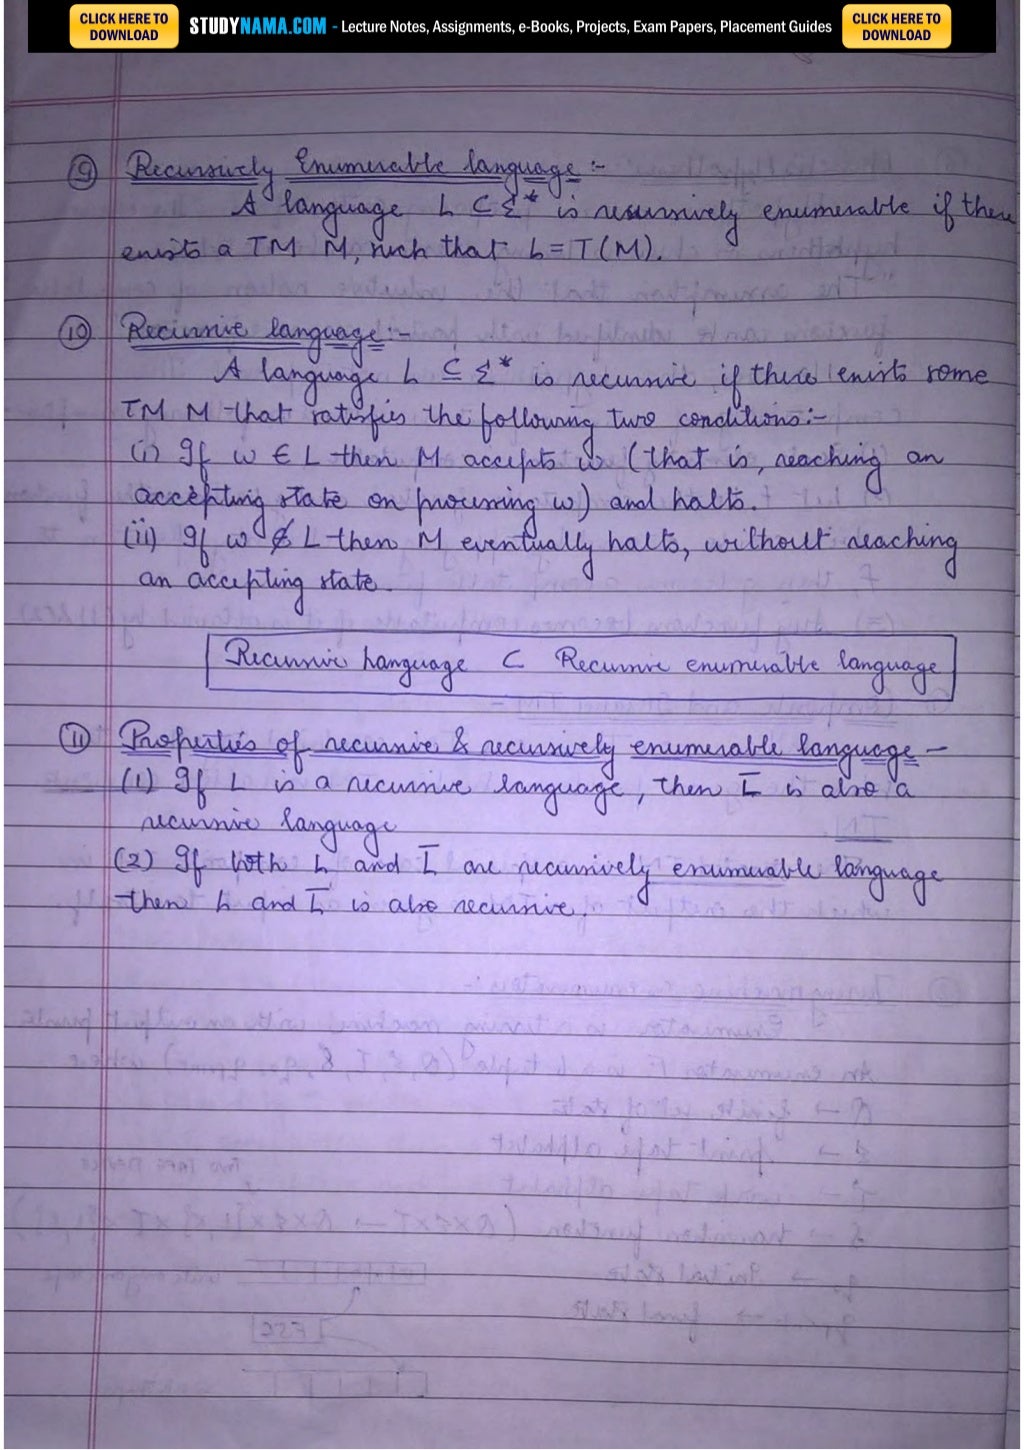 CLICK HERE TO DOWNLOAD STUDYNAMA.COM - Lecture Notes, Assignments, e-Books, Projects, Exam Papers, Placement Guides CLICK HERE TO DOWNLOAD
⑨ Recursively Enumerable language :-
A language L ⊆ Σ* is recursively enumerable if there
exists a TM M, such that L = T(M).
⑩ Recursive language :-
A language L ⊆ Σ* is recursive if there exists some
TM M that satisfies the following two conditions:-
(i) If w ∈ L then M accepts w (that is, reaching an
accepting state on processing w) and halts.
(ii) If w ∉ L then M eventually halts, without reaching
an accepting state.
Recursive Language ⊂ Recursive enumerable language
⑪ Properties of recursive & recursively enumerable language -
(1) If L is a recursive language, then L̅ is also a
recursive language
(2) If both L and L̅ are recursively enumerable language
then L and L̅ is also recursive.